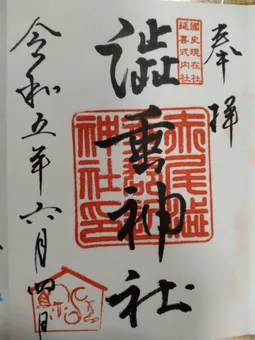 奉拝
國史現在社
延喜式内社
澁垂神社
赤尾澁
神社印
令和五年六月四日